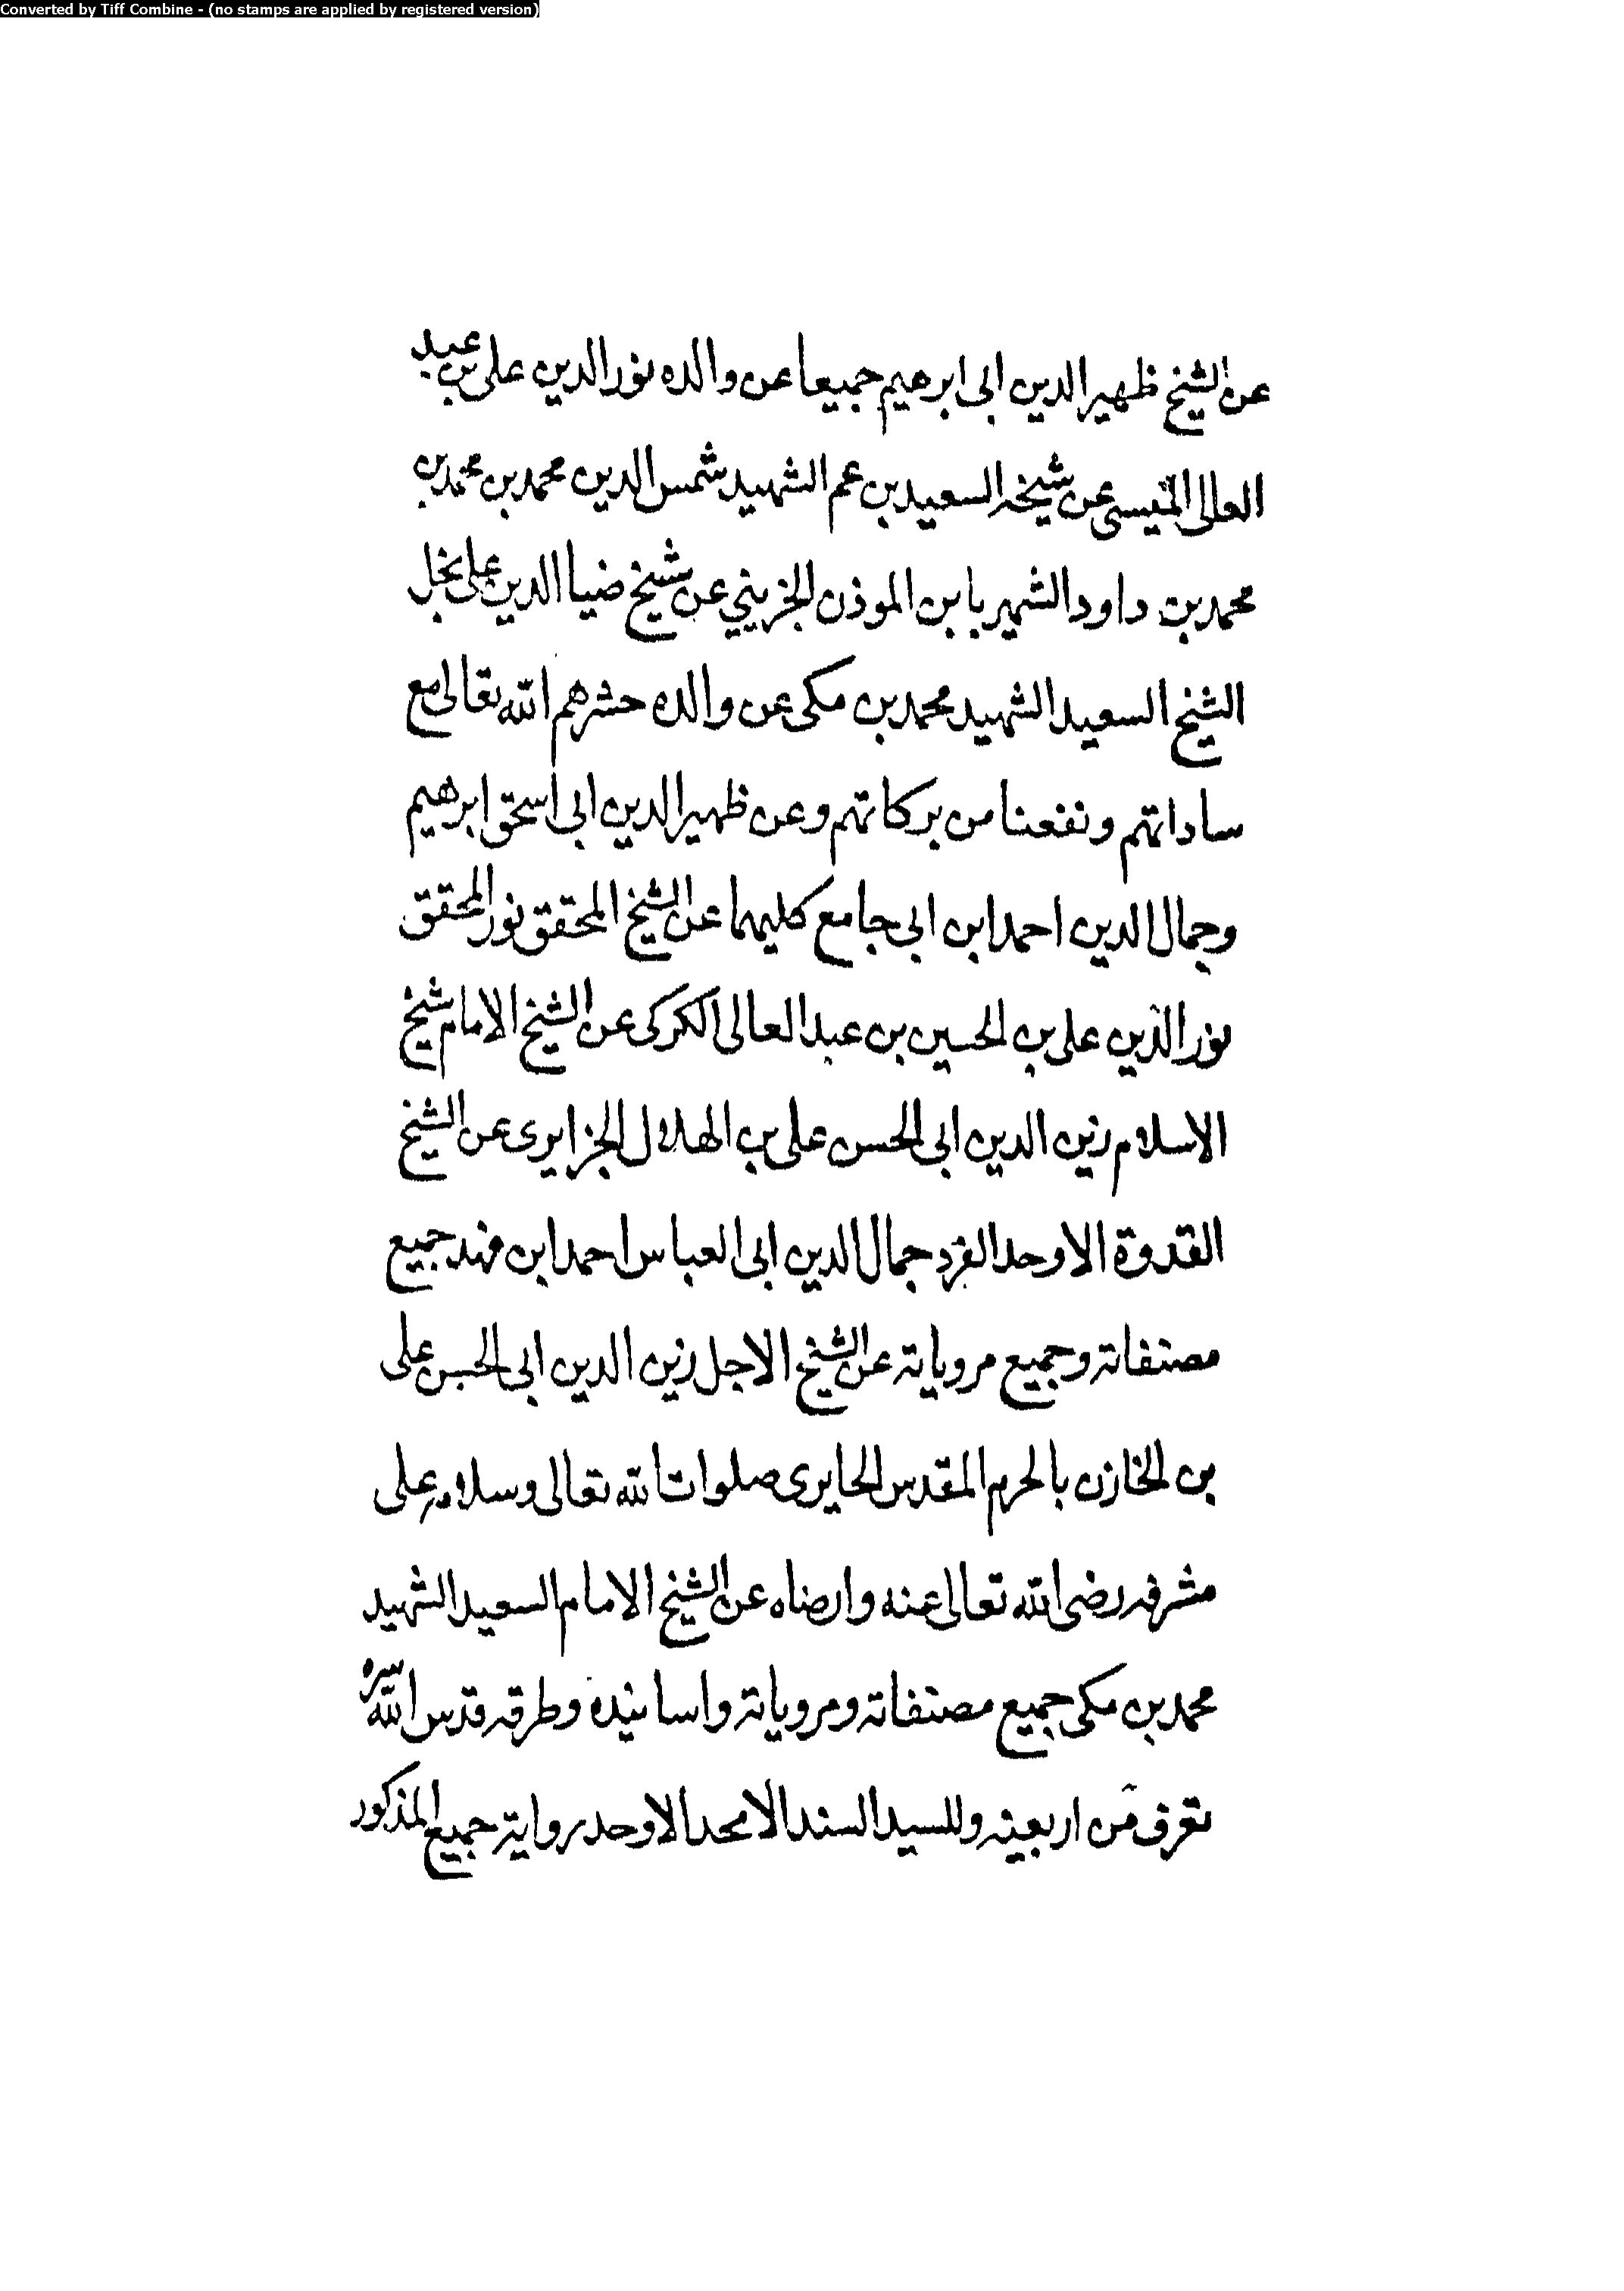 Converted by Tiff Combine - (no stamps are applied by registered version)
عن الشيخ ظهير الدين ابى ابرهيم جميعا عن والده نور الدين على بن عبد
العالى الميسى عن شيخه السعيد بن عم الشهيد شمس الدين محمد بن محمد بن
محمد بن داود الشهير بابن الموذن الجزيني عن شيخ ضيا الدين على نجل
الشيخ السعيد الشهيد محمد بن مكى عن والده حشرهم الله تعالى مع
ساداتهم ونفعنا من بركاتهم وعن ظهير الدين ابى اسحق ابرهيم
وجمال الدين احمد ابن ابى جامع كليهما عن الشيخ المحقق نور المحقق
نور الدين على بن الحسين بن عبد العالى الكركى عن الشيخ الامام شيخ
الاسلام زين الدين ابى الحسن على بن الهلال الجزايرى عن الشيخ
القدوة الاوحد الفرد جمال الدين ابى العباس احمد ابن فهد جميع
مصنفاته وجميع مروياته عن الشيخ الاجل زين الدين ابى الحسن على
بن الخازن بالحرم المقدس الحايرى صلوات الله تعالى وسلامه على
مشرفه رضى الله تعالى عنه وارضاه عن الشيخ الامام السعيد الشهيد
محمد بن مكى جميع مصنفاته ومروياته واسانيده وطرقه قدس الله سره
تعرف من اربعينه وللسيد السند الامجد الاوحد رواية جميع المذكور